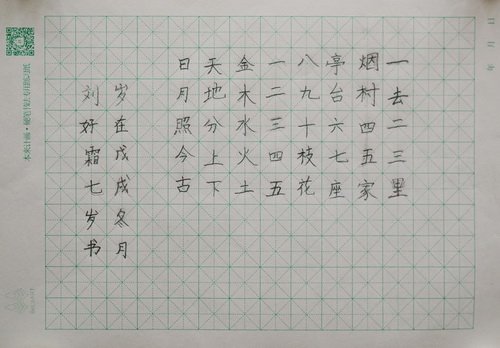 一去二三里
烟村四五家
亭台六七座
八九十枝花
一二三四五
金木水火土
天地分上下
日月照今古
岁在戊戌冬月
刘好霜七岁书
年 月 日